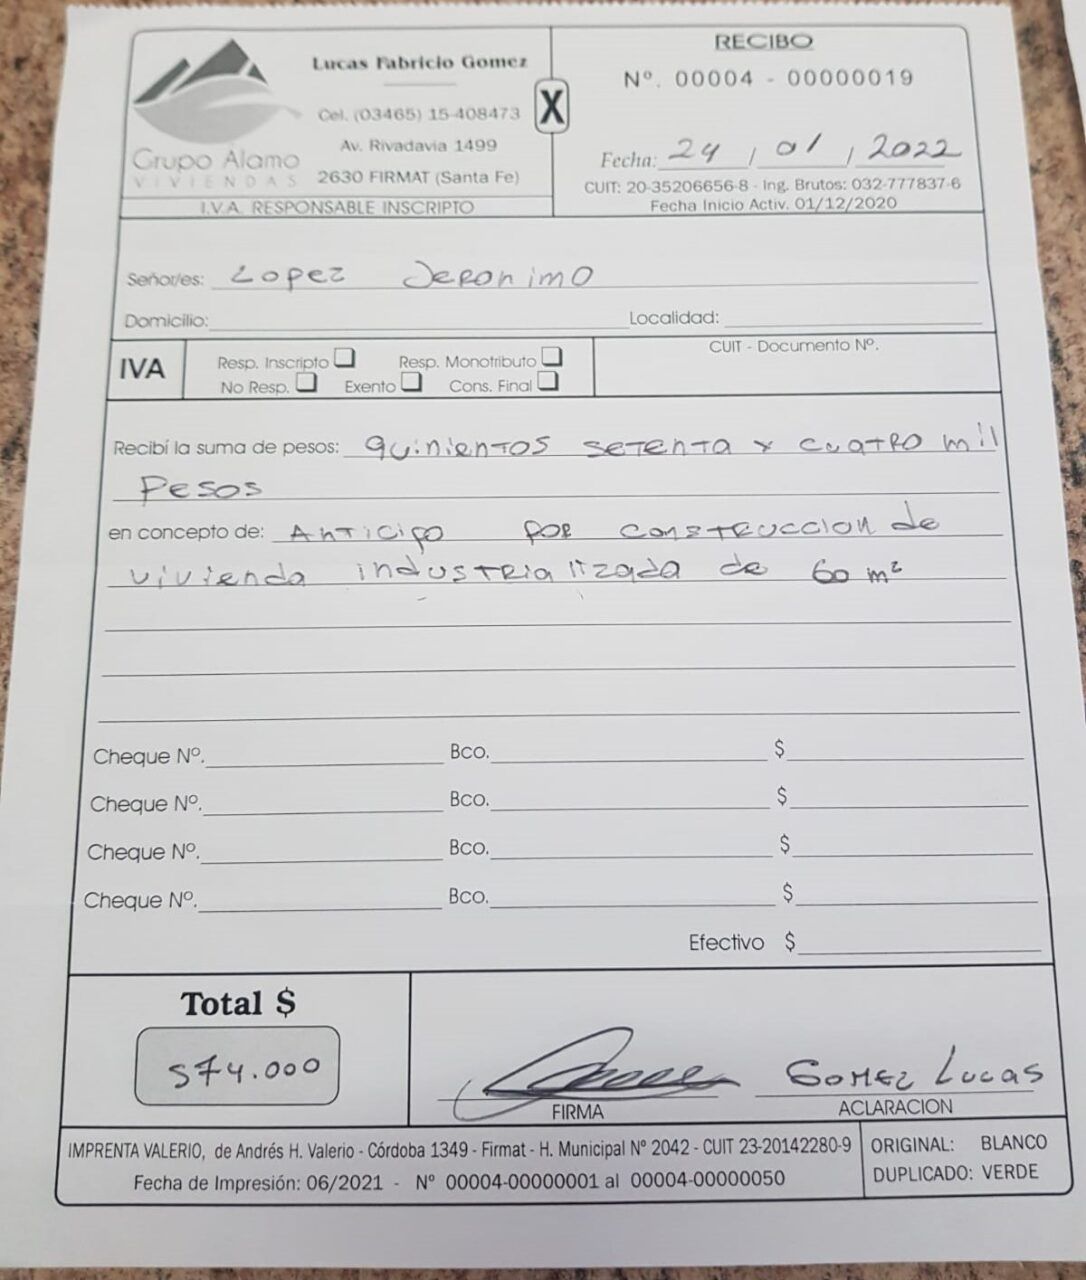 RECIBO
Lucas Fabricio Gomez
Nº. 00004 - 00000019
Cel. (03465) 15-408473
X
Av. Rivadavia 1499
Grupo Alamo
VIVIENDAS
2630 FIRMAT (Santa Fe)
Fecha: 24 / 01 / 2022
CUIT: 20-35206656-8 - Ing. Brutos: 032-777837-6
I.V.A. RESPONSABLE INSCRIPTO
Fecha Inicio Activ. 01/12/2020
Señor/es: Lopez Jeronimo
Domicilio: Localidad:
IVA
Resp. Inscripto Resp. Monotributo
No Resp. Exento Cons. Final
CUIT - Documento Nº.
Recibí la suma de pesos: quinientos setenta y cuatro mil
Pesos
en concepto de: Anticipo por construccion de
vivienda industrializada de 60 m²
Cheque Nº. Bco. $
Cheque Nº. Bco. $
Cheque Nº. Bco. $
Cheque Nº. Bco. $
Efectivo $
Total $
574.000
Gomez Lucas
FIRMA
ACLARACION
IMPRENTA VALERIO, de Andrés H. Valerio - Córdoba 1349 - Firmat - H. Municipal Nº 2042 - CUIT 23-20142280-9
Fecha de Impresión: 06/2021 - Nº 00004-00000001 al 00004-00000050
ORIGINAL: BLANCO
DUPLICADO: VERDE